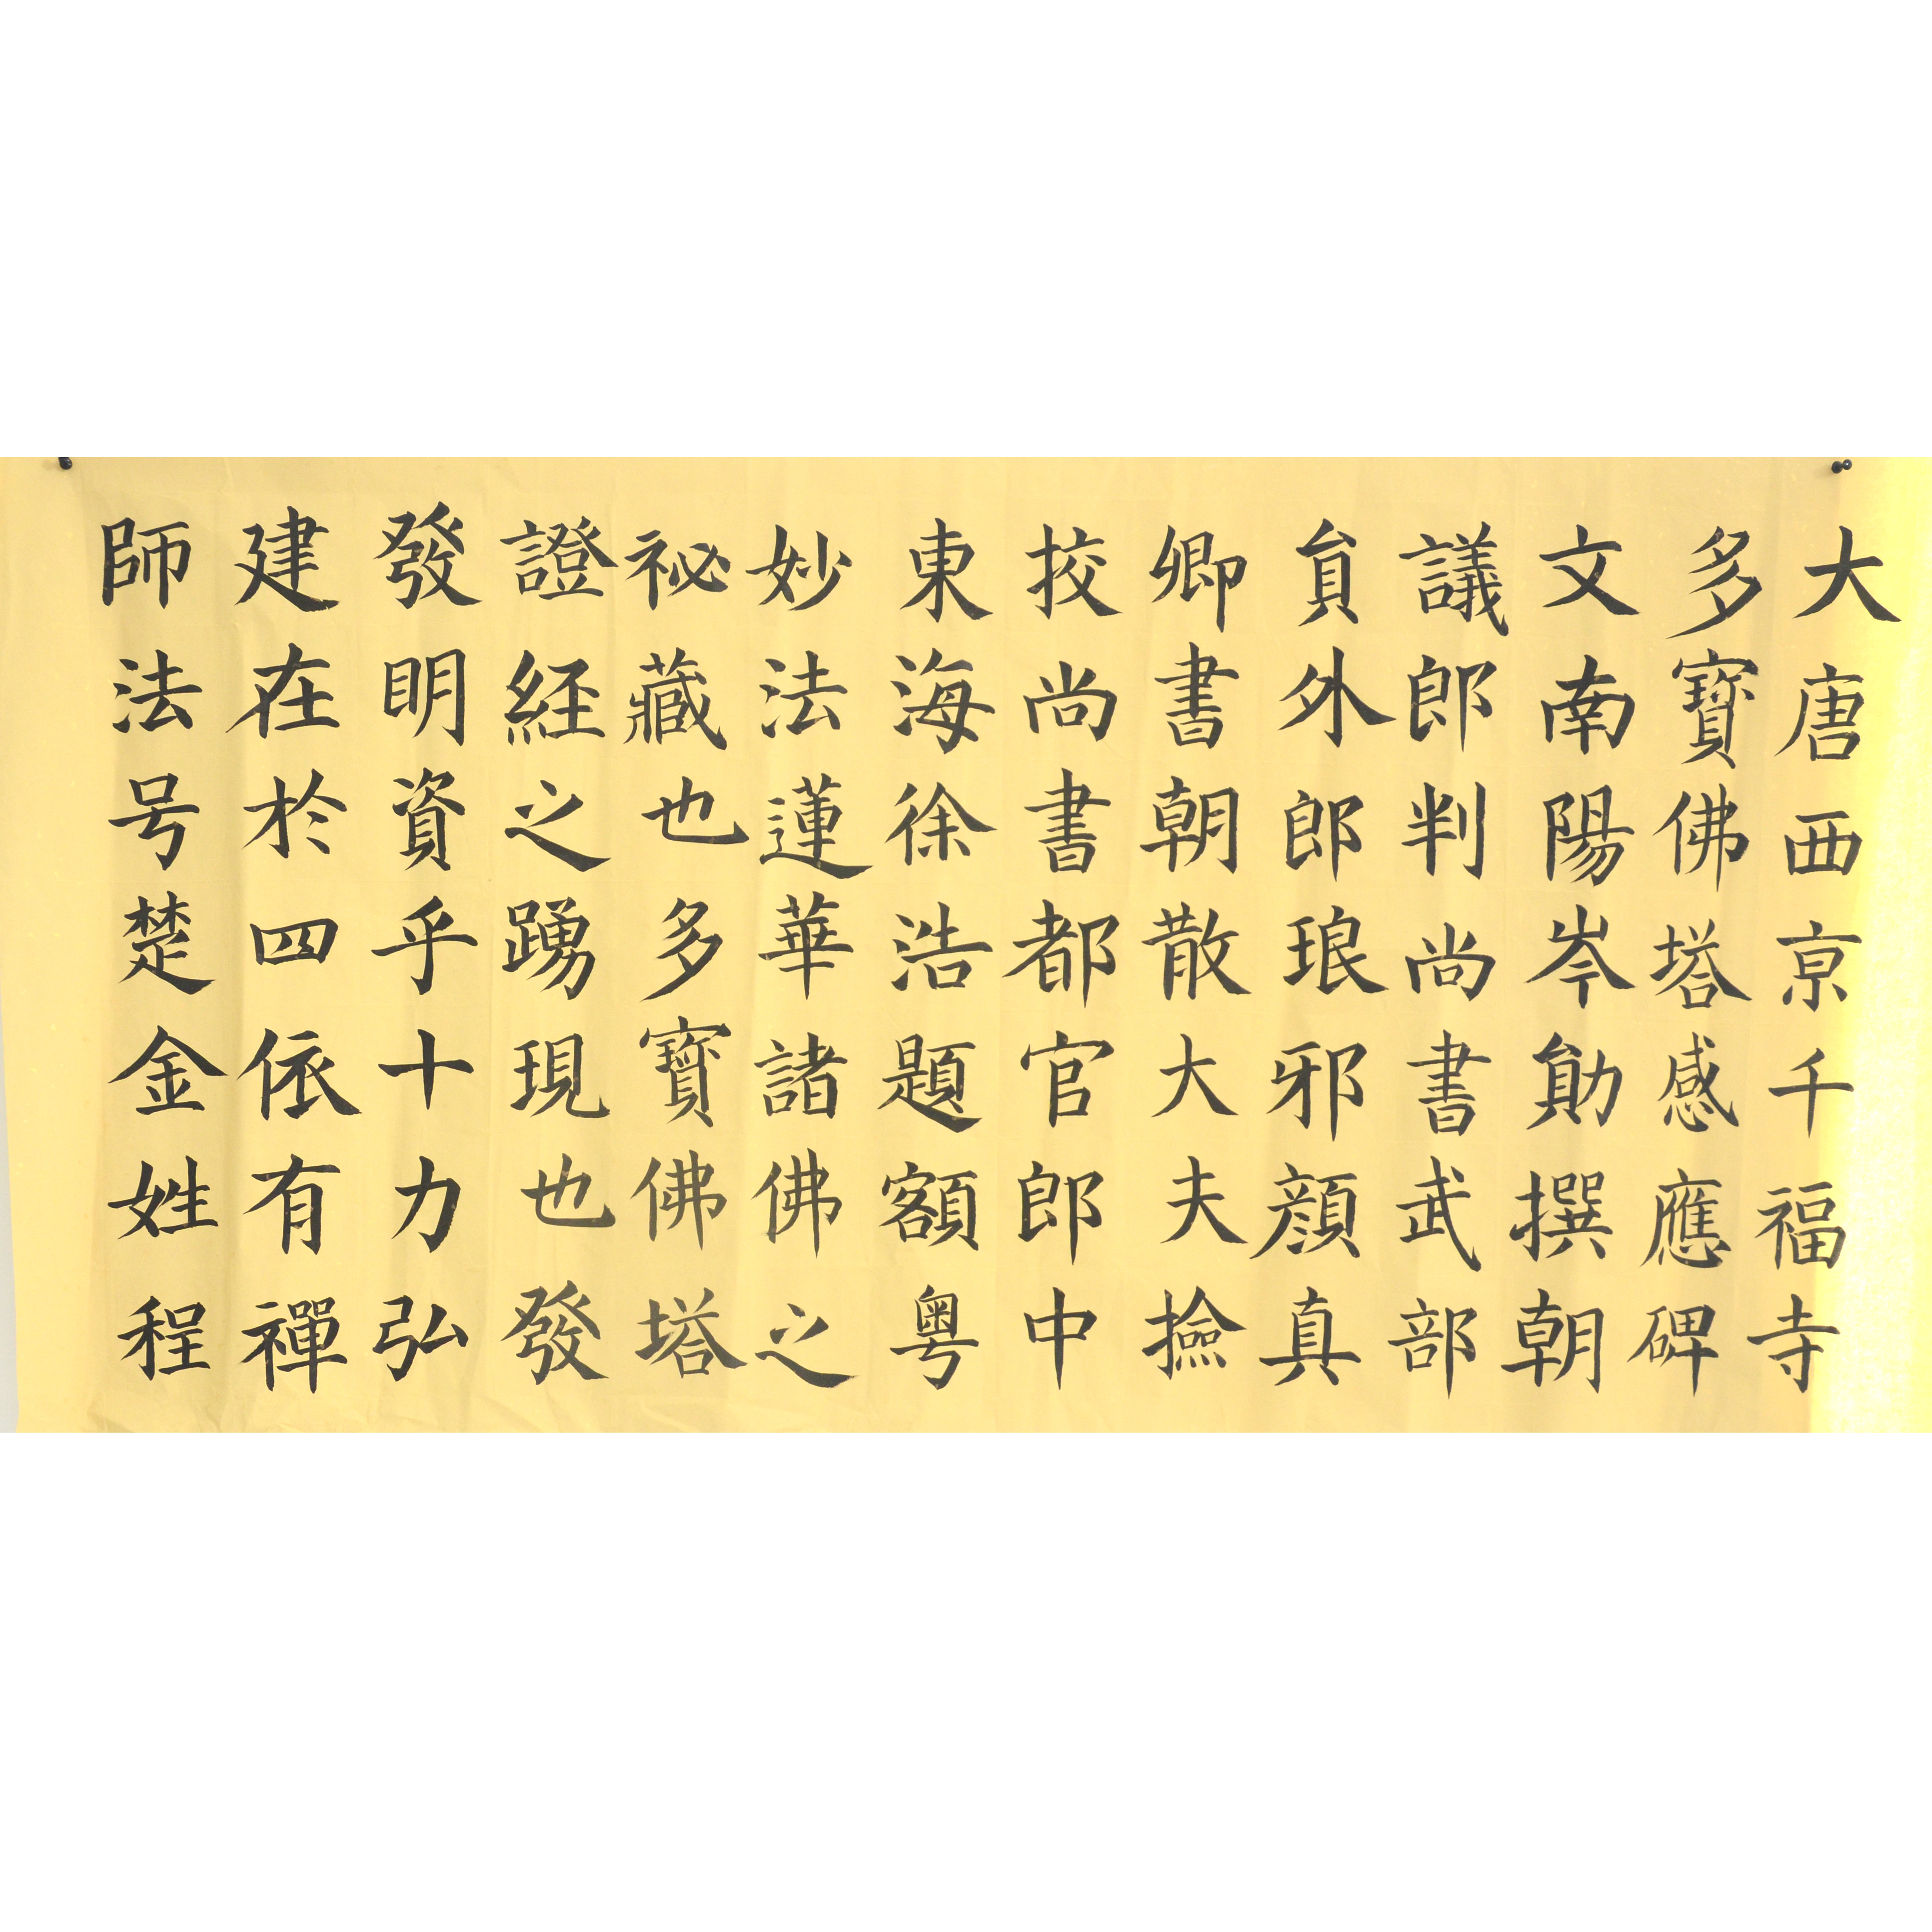 大唐西京千福寺
多寶佛塔感應碑
文南陽岑勛撰朝
議郎判尚書武部
貟外郎琅邪顏真
卿書朝散大夫撿
挍尚書都官郎中
東海徐浩題額粵
妙法蓮華諸佛之
祕藏也多寶佛塔
證經之踴現也發
發明資乎十力弘
建在於四依有禪
師法号楚金姓程